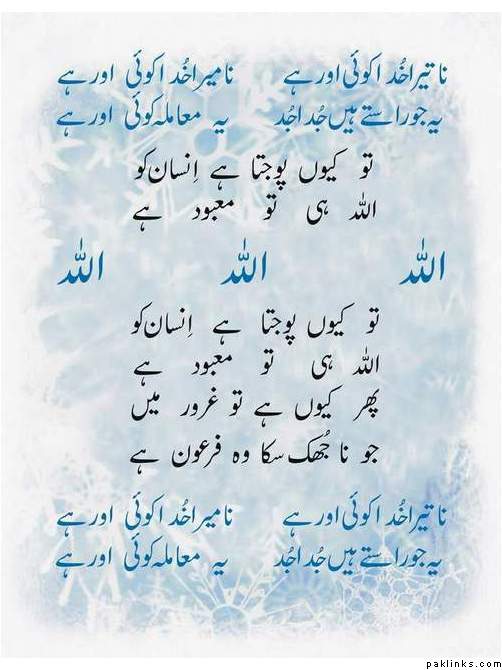 نا تیرا خُدا کوئی اور ہے نا میرا خُدا کوئی اور ہے
یہ جو راستے ہیں جُدا جُدا یہ معاملہ کوئی اور ہے
تو کیوں پوجتا ہے اِنسان کو
اللہ ہی تو معبود ہے
اللہ اللہ اللہ
تو کیوں پوجتا ہے اِنسان کو
اللہ ہی تو معبود ہے
پھر کیوں ہے تو غرور میں
جو نا جُھک سکا وہ فرعون ہے
نا تیرا خُدا کوئی اور ہے نا میرا خُدا کوئی اور ہے
یہ جو راستے ہیں جُدا جُدا یہ معاملہ کوئی اور ہے
paklinks.com